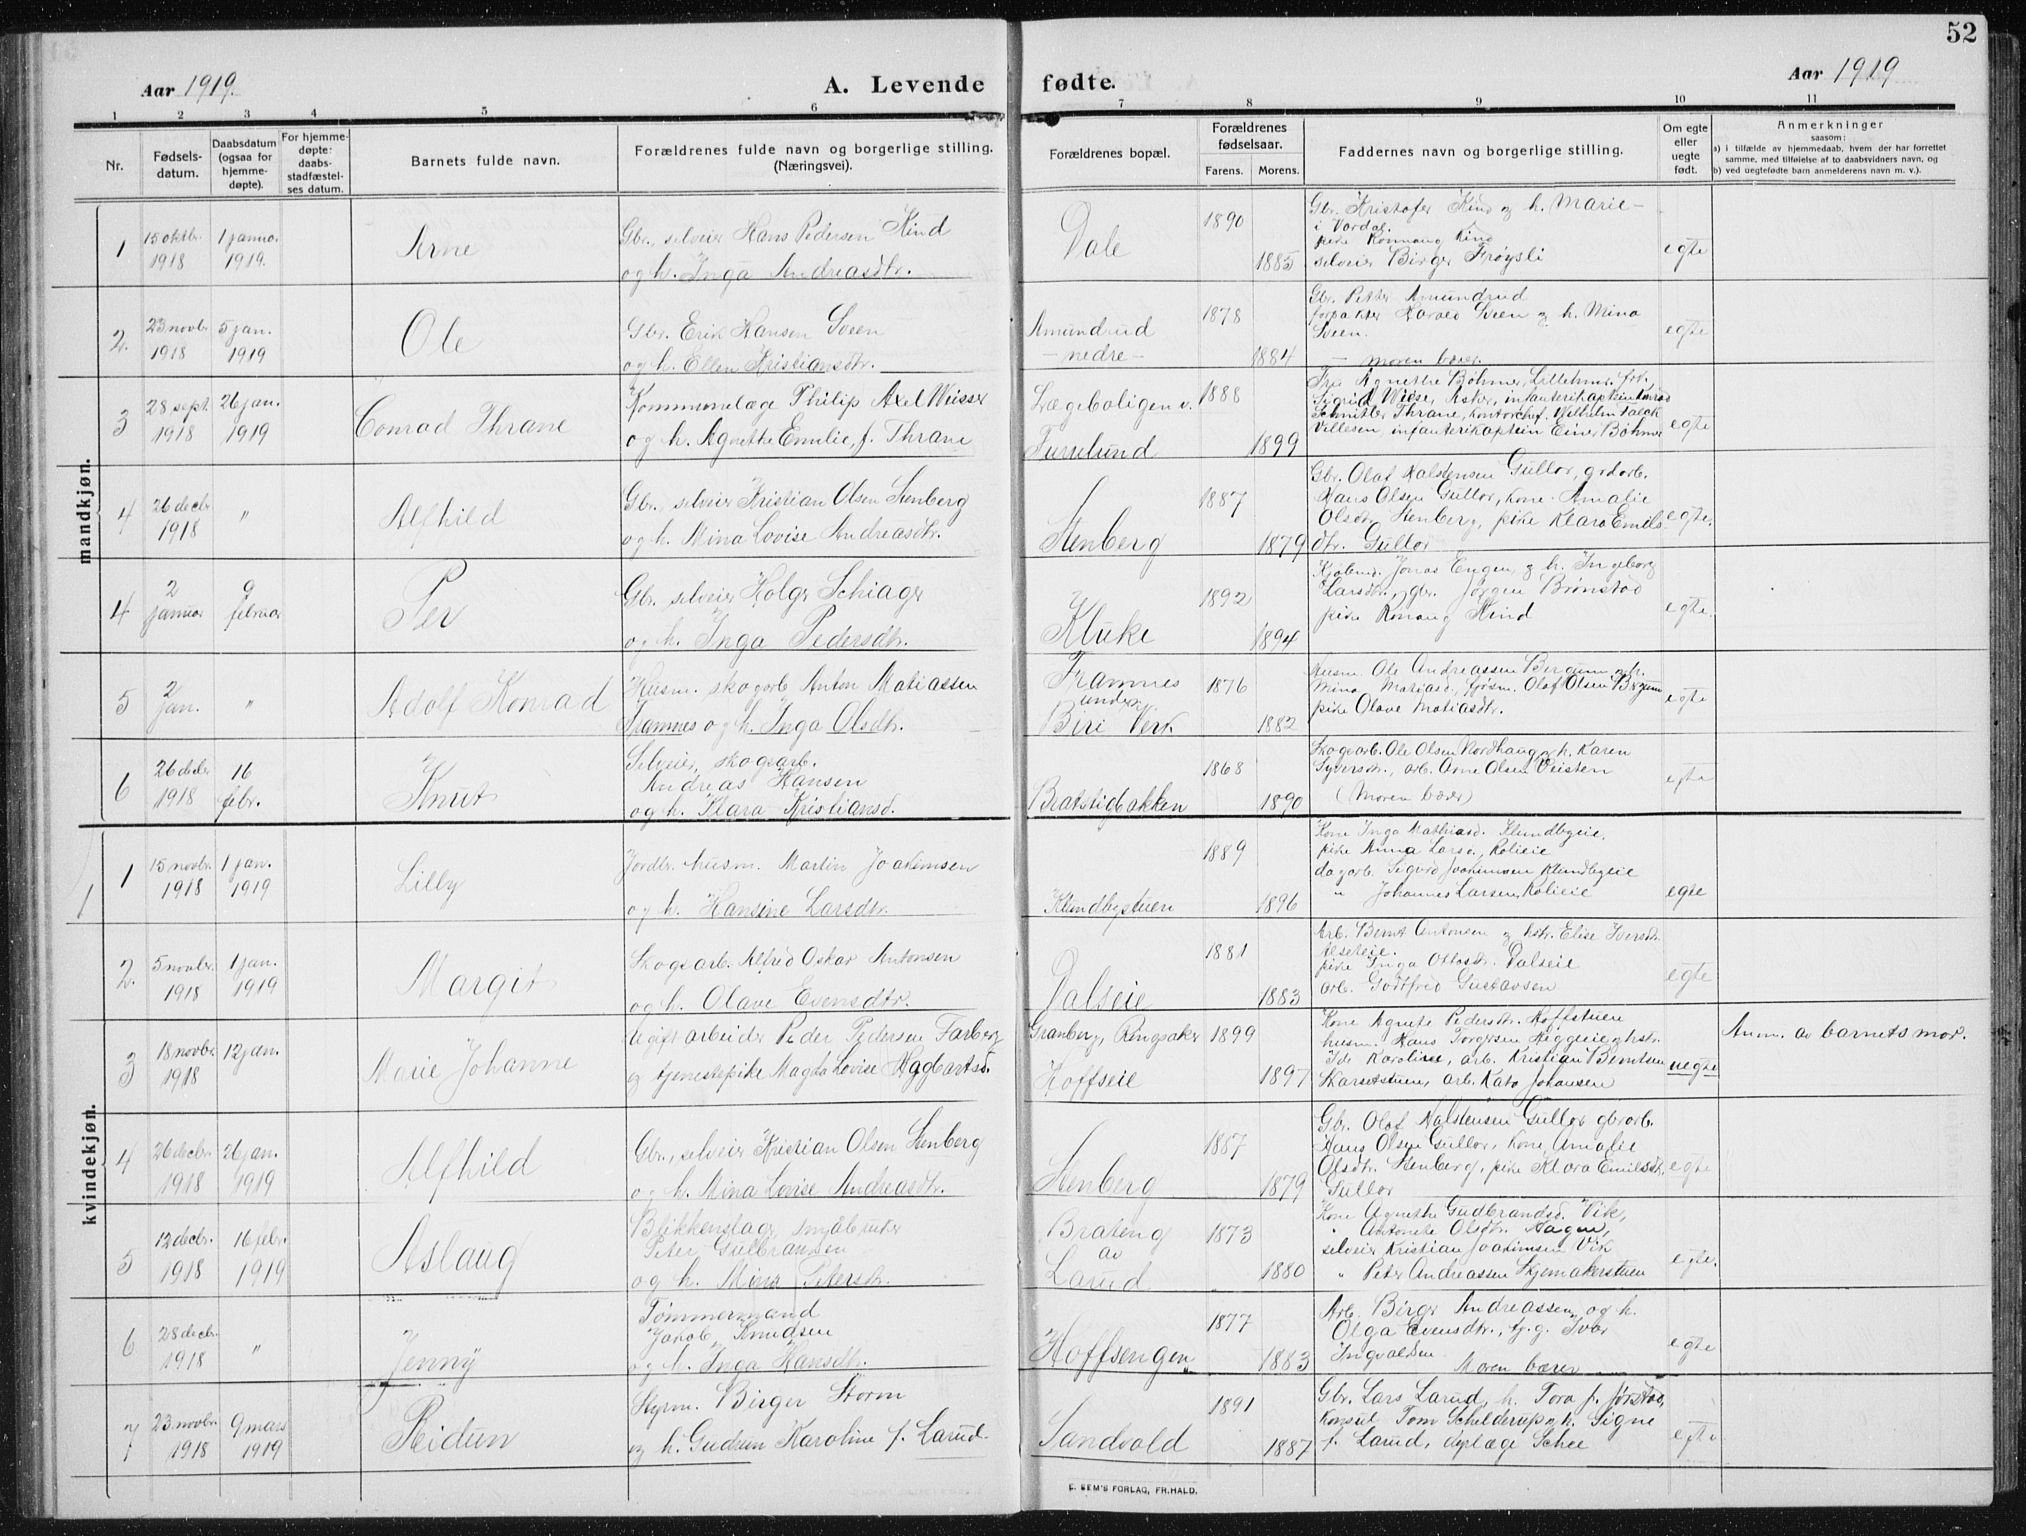 52
Aar 1919.
A. Levende fødte.
Aar 1919
1 2 3 4 5 6 7 8 9 10 11
Nr.
Fødsels-
datum.
Daabsdatum
(ogsaa for
hjemme-
døpte).
For hjemme-
døpte:
daabs-
stadfæstel-
ses datum.
Barnets fulde navn.
Forældrenes fulde navn og borgerlige stilling.
(Næringsvei).
Forældrenes bopæl.
Forældrenes
fødselsaar.
Farens. Morens.
Faddernes navn og borgerlige stilling.
Om egte
eller
uegte
født.
Anmerkninger
saasom:
a) i tilfælde av hjemmedaab, hvem der har forrettet
samme, med tilføielse af to daabsvidners navn, og
b) ved uegtefødte barn anmelderens navn m. v.).
mandkjøn.
1
15 oktbr.
1918
1 janua.
1919.
Arne
Gbr., selveier Hans Pedersen Kind
og h. Inga Andreasdtr.
Dale
1890
1885
Gbr. Kristofer Kind og h. Marie -
i Vardal.
pike Ronnaug Kind
selveier Birger Frøysli
egte
2.
23 novbr
1918
5 jan.
1919
Ole
Gbr. Erik Hansen Sveen
og h. Ellen Kristiansdtr.
Amundrud
- nedre -
1878
1884
Gbr. Petter Amundrud
forpakter Harald Sveen og h. Mina
Sveen.
- Moren bærer.
egte
3
28 sept.
1918
26 jan.
1919
Conrad Thrane
Kommunelæge Philip Axel Weisser
og h. Agnethe Emilie, f. Thrane
Lægeboligen v.
Furulund
1888
1899
Fru Agnethe Böhmer, Lillehmr. frk.
Sigrid Wiese, Asker, infanterikaptein Konrad
Schnitler Thrane, kontorchef Wilhelm Falck
Villesen, infanterikaptein Einar Böhmer
egte
4
26 decbr
1918
"
Alfhild
Gbr., selveier Kristian Olsen Stenberg
og h. Mina Lovise Andreasdtr.
Stenberg
1887
1879
Gbr. Olaf Halstensen Gullor, grdarb.
Hans Olsen Gullor, kone Amalie
Olsdtr. Stenberg, pike Klara Emils-
dtr. Gullor
egte.
4
2
januar
9
februar
Per
Gbr. selveier Holgr Schiager
og h. Inga Pedersdtr.
Kluke
1892
1894
Kjøbmd. Jonas Engen og h. Ingeborg
Larsdtr., gbr. Jørgen Brønstad
pike Ronnaug Kind
egte.
5
2
Jan.
"
Adolf Konrad
Husm. skogarb. Anton Matiassen
Framnes og h. Inga Olsdtr.
Framnes
under
Biri Verk
1876
1882
Husm. Ole Andreassen Bergum og h.
Mina Matiasd., gjøsm. Olaf Olsen Bergum
pike Olave Matiasdtr.
egte
6
26 decbr
1918
16
febr.
Knut
Selveier, skogarb.
Andreas Hansen
og h. Klara Kristiansd.
Bratstigbakken
1868
1890
Skogsarb. Ole Olsen Nordhaug og h. Karen
Syversdtr., arb. Arne Olsen Veisten
(Moren bærer)
egte
kvindekjøn.
1
15 novbr.
1918
1 jan.
1919
Lilly
Jordbr. husm. Martin Joakimsen
og h. Hansine Larsdtr.
Klundbystuen
1889
1896
Kone Inga Mathiasd. Klundbyeie,
pike Anna Larsd., Kolieie
dagarb. Sigurd Joakimsen Klundbyeie
" Johannes Larsen, Kolieie
egte
2.
5 novbr.
1918
1 jan.
1919
Margit
Skogsarb. Alfred Oskar Antonsen
og h. Olave Evensdtr.
Dalseie
1881
1883
Arb. Bernt Antonsen og hstr. Elise Iversdtr.
Alseteie.
pike Inga Ottosdtr. Dalseie
arb. Godtfred Gustavsen
egte
3
18 novbr.
1918
12 jan.
Marie Johanne
Ugift arbeider Peder Pedersen Farberg
og tjenestepike Magda Lovise Hagbartsd.
Granberg, Ringsaker
Hoffseie
1899
1897
Kone Agnete Pedersdtr. Hoffstuen
husm. Hans Torgersen Heggeie og hstr.
Ida Karoline, arb. Kristian Berntsen
Skarsetstuen, arb. Kato Johansen
uegte
Anm. av barnets mor.
4
26 decbr.
1918
26 jan.
1919
Alfhild
Gbr., selveier Kristian Olsen Stenberg
og h. Mina Lovise Andreasdtr.
Stenberg
1887
1879
Gbr. Olaf Halstensen Gullor gbrarb.
Hans Olsen Gullor, kone Amalie
Olsdtr. Stenberg, pike Klara Emilsdtr.
Gullor
egte
5
12 decbr.
1918
16 febr.
1919
Aslaug
Blikkenslager småbruker
Peter Gulbransen
og h. Mina Petersdtr.
Brateng
av
Larud
1873
1880
Kone Agnethe Gudbrandsd. Vik,
" Antonete Olsdtr. Hagen,
selveier Kristian Joakimsen Vik
" Peter Andreassen Skjemakerstuen
egte.
6
28 decbr.
1918
"
Jenny
Tømmermand
Jakob Knudsen
og h. Inga Hansdtr.
Hoffsengen
1877
1883
Arb. Birger Andreassen og h.
Olga Evensdtr., tj. g. Ivar
Ingvaldsen
Moren bærer
egte
7
23 novbr.
1918
9 mars
1919
Reidun
Styrm. Birger Storm
og h. Gudrun Karoline f. Larud.
Sandvold
1891
1887
Gbr. Lars Larud, h. Tora f. Jønstad,
Konsul Tom Schelderup og h. Signe
f. Larud, dyrlæge Schee
egte
E. SEM'S FORLAG, FR.HALD.